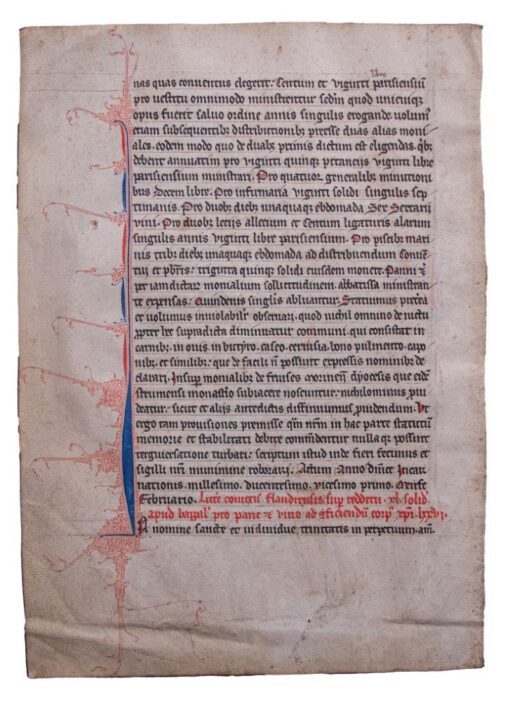 libre
nas quas conventus elegerit. Centum et viginti parisiensiū
pro vestitu omnimodo ministrentur sedm quod unicuiqz
opus fuerit salvo ordine annis singulis erogande volum9
etiam subsequentibz distributionibz preesse duas alias moni
ales. eodem modo quo de duabz primis dictum est eligendas. qbz
debent annuatim pro viginti quinqz petanciis viginti libre
parisiensium ministrari. Pro quatuor generalibz minutioni
bus Decem libre. Pro infirmaria viginti solidi singulis sep
timanis. Pro duobz diebz unaquaqz ebdomada Sex Sextarii
vini. Pro duobz lectis allecium et Centum ligaturis alarum
singulis annis viginti libre parisiensium. Pro piscibz mari
nis tribz diebz unaquaqz ebdomada ad distribuendum
et pbris. triginta quinqz solidi eiusdem monete. Panni
per iamdictarz monialium sollicitudinem. abbatissa ministran
te expensas. Quindenis singlis abluantur. Statuimus pterea
et volumus inviolabilr observari. quod nichil omnino de victu
ppter hec supradicta diminuatur communi. qui consistat in
carnibz. in ovis. in butyro. caseo. cervisia. bono pulmento. capo
nibz. et similibz. que de facili n possunt expressis nominibz de
clarari. Insup monialibz de dyocesis que
monastio subiacere noscuntur. nichilominus pui
deatur. sicut et aliis antedictis diffinivimus puidendum. Ut
ergo tam provisiones premisse qm nrm in hac parte statutū
memorie et stabilitati debite commendentur nullaqz possint
tergiversatione turbari. scriptum istud inde fieri fecimus et
sigilli nrī munimine roborari. Actum. Anno dnice Incar
nationis. millesimo. ducentesimo. vicesimo primo. Mense
Februario. Littē comitis flandrensis sup redditu .xl. solid
apud bappal pro pane et vino ad gficiendū corpz xpi. lxxvi.
In nomine sancte et individue trinitatis in perpetuum. am.